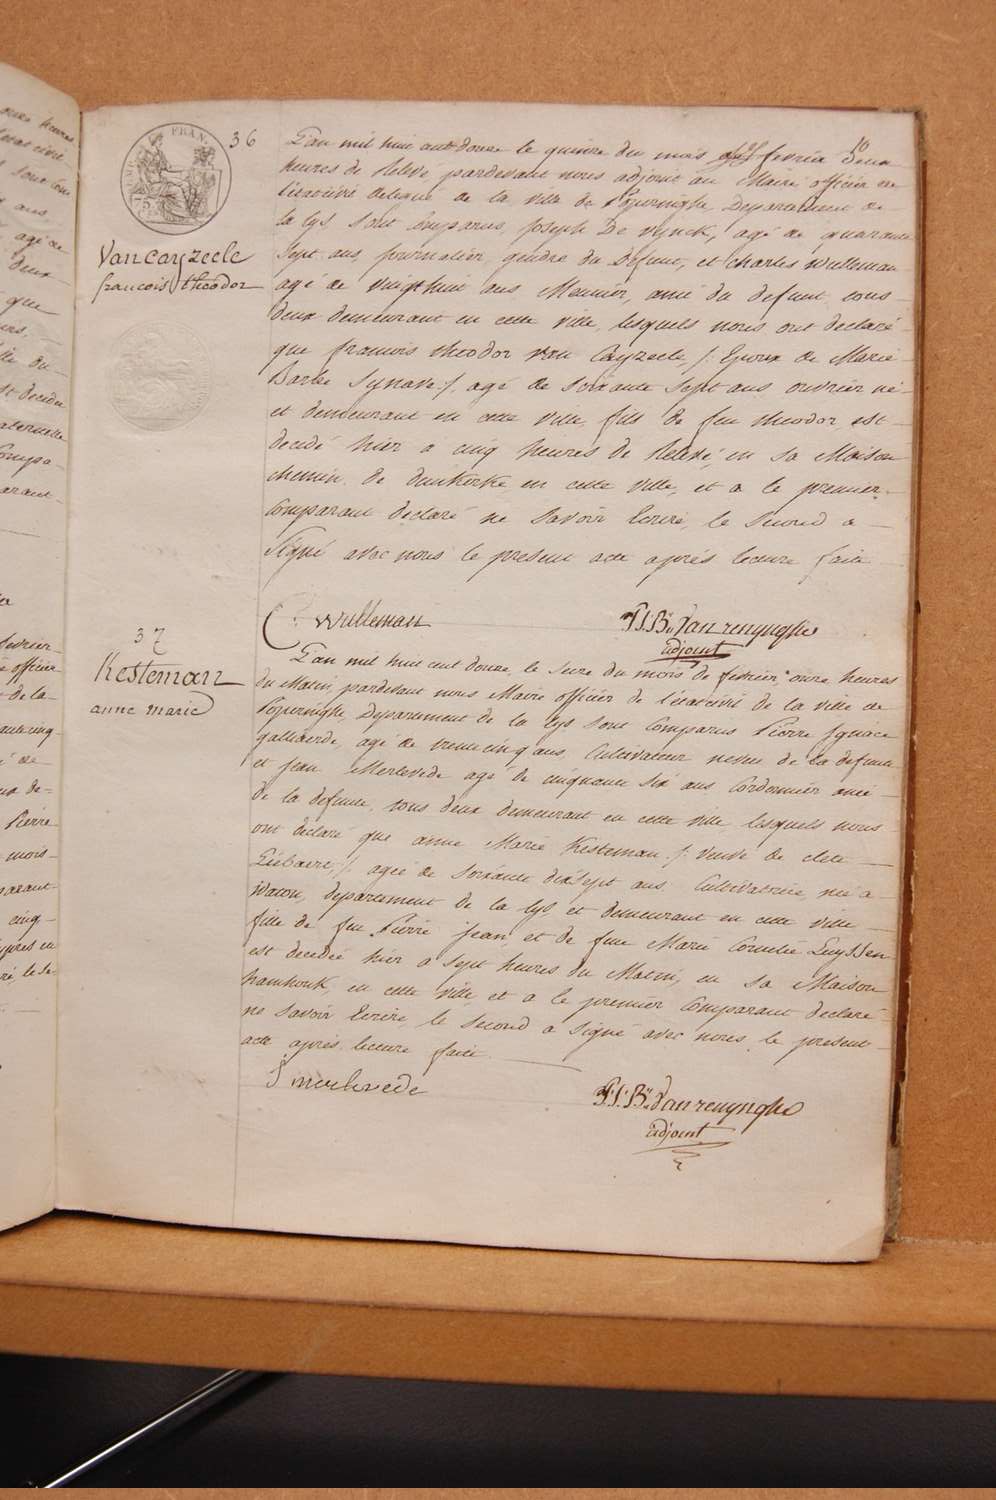 36
10
Van Cayzeele
francois theodor
L'an mil huit cent douze le quinze du mois fevrier deux
heures de Relevé pardevant nous adjoint au Maire officier de
l'état civil delegué de la ville de Poperinghe Departement de
la Lys, sont Comparus, Joseph De Vynck, agé de quarante
sept ans, journalier, gendre du Defunt, et Charles Wulleman
agé de vingthuit ans Meunier, amis du defunt, tous
deux demeurant en cette ville, lesquels nous ont declaré
que francois theodor van Cayzeele, /: Epoux de Marie
Barbe Synave :/ agé de soixante sept ans ouvrier né
et demeurant en cette ville, fils de feu theodor, est
decedé hier a cinq heures de Relevé, en sa Maison
chemin de dunkerke, en cette ville, et a le premier
Comparant declaré ne savoir Ecrire, le second a
Signé avec nous le present acte après lecture faite
C: Wulleman
P:J:B: Vanrenynghe
adjoint
37
Kesteman
anne marie
L'an mil huit cent douze, le seize du mois de fevrier, onze heures
du Matin, pardevant nous Maire officier de l'état civil de la ville de
Poperinghe, Departement de la Lys sont Comparus Pierre Ignace
galliaerde, agé de trente cinq ans, Cultivateur neveu de la defunte
et Jean Merlevede agé de cinquante six ans Cordonnier ami
de la defunte, tous deux demeurant en cette ville lesquels nous
ont declaré que anne Marie Kesteman /: veuve de clete
Liebaert, :/ agée de soixante dixsept ans Cultivatrice, née a
Watou, departement de la Lys et demeurant en cette ville
fille de feu Pierre Jean, et de feue Marie Cornelie Luyssen
est decedée hier a sept heures du Matin, en sa Maison
hamhouk, en cette ville et a le premier Comparant declaré
ne savoir Ecrire le second a signé avec nous le present
acte après lecture faite
J merlevede
P:J:B: Vanrenynghe
adjoint